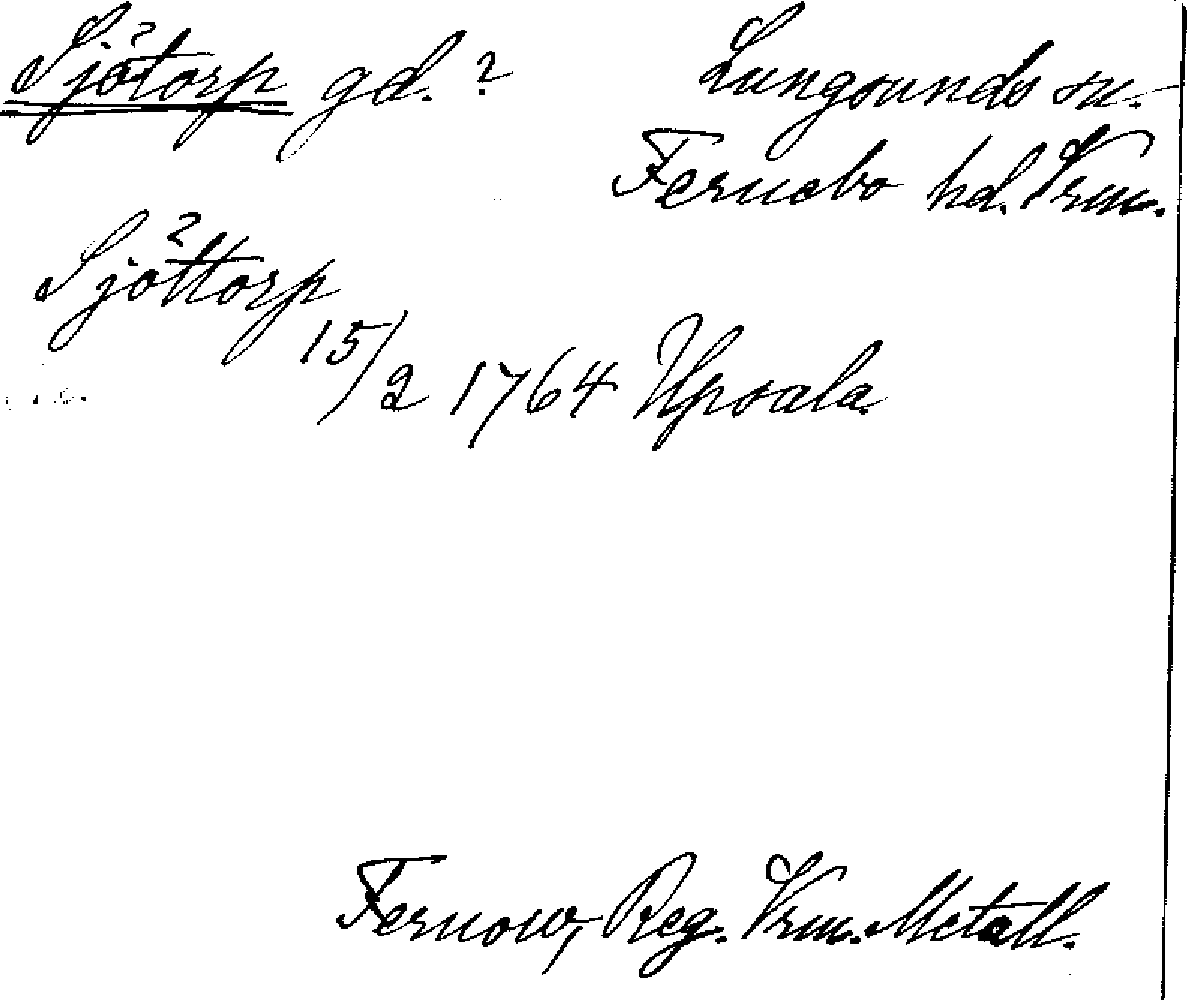 Sjötorp gd. ?
Lungsunds sn.
Fernebo hd. Vrm.
Sjöttorp
15/2 1764 Upsala
Fernow, Reg. Vrm. Metall.